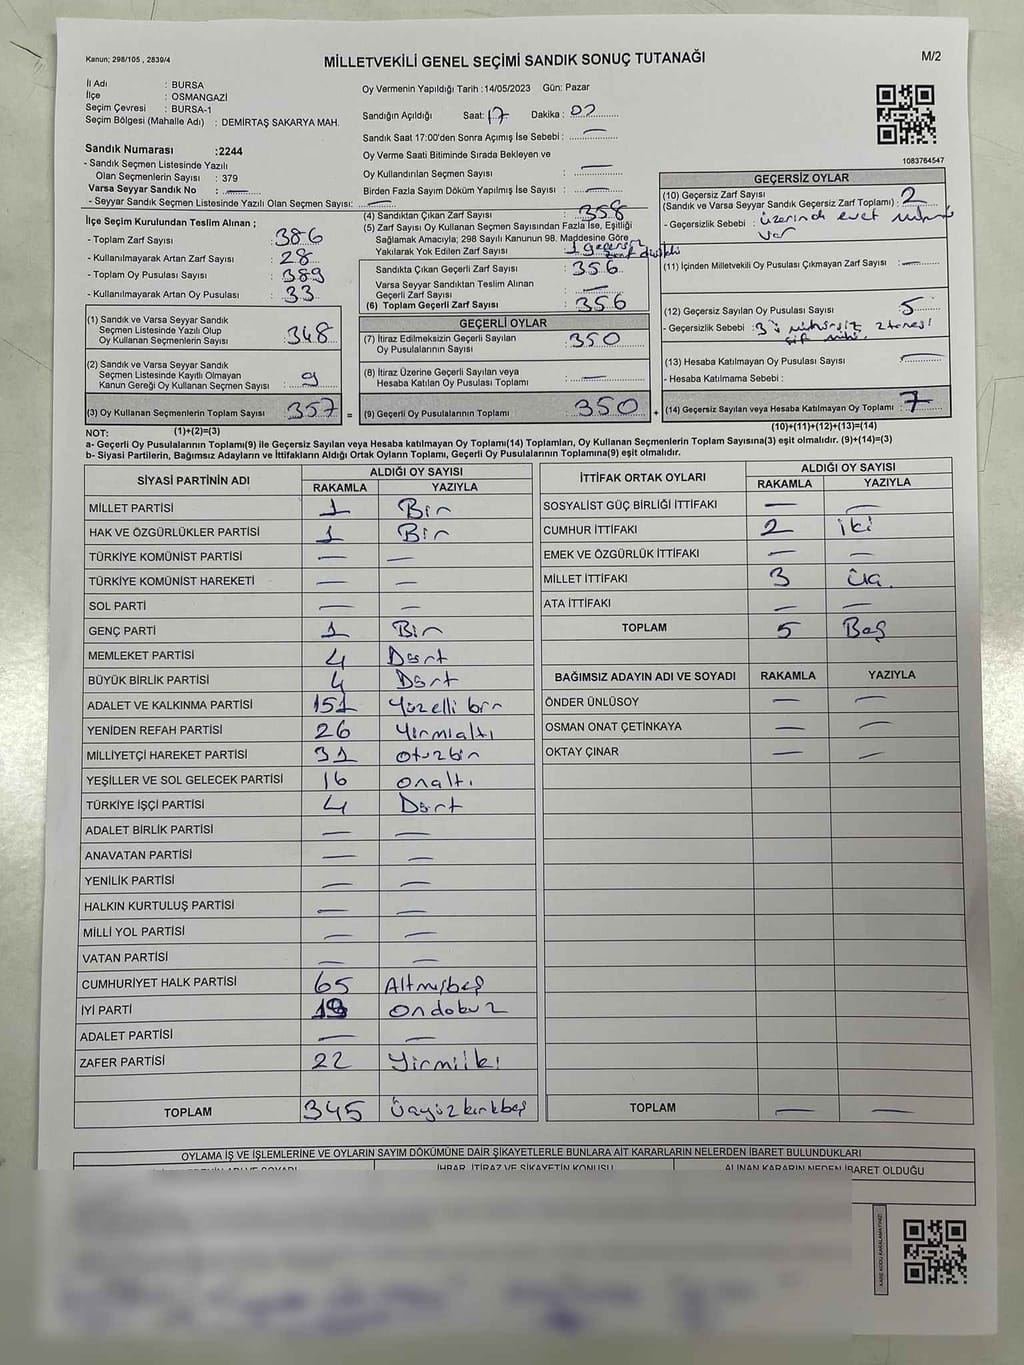 Kanun; 298/105 , 2839/4
MİLLETVEKİLİ GENEL SEÇİMİ SANDIK SONUÇ TUTANAĞI
M/2
İl Adı : BURSA
İlçe : OSMANGAZİ
Seçim Çevresi : BURSA-1
Seçim Bölgesi (Mahalle Adı) : DEMİRTAŞ SAKARYA MAH.
Sandık Numarası :2244
- Sandık Seçmen Listesinde Yazılı
Olan Seçmenlerin Sayısı : 379
Varsa Seyyar Sandık No : —
- Seyyar Sandık Seçmen Listesinde Yazılı Olan Seçmen Sayısı: —
Oy Vermenin Yapıldığı Tarih :14/05/2023 Gün: Pazar
Sandığın Açıldığı Saat: 17 Dakika: 02
Sandık Saat 17:00'den Sonra Açımış İse Sebebi : —
Oy Verme Saati Bitiminde Sırada Bekleyen ve
Oy Kullandırılan Seçmen Sayısı : —
Birden Fazla Sayım Döküm Yapılmış İse Sayısı : —
1083764547
İlçe Seçim Kurulundan Teslim Alınan ;
- Toplam Zarf Sayısı : 386
- Kullanılmayarak Artan Zarf Sayısı : 28
- Toplam Oy Pusulası Sayısı : 389
- Kullanılmayarak Artan Oy Pusulası : 33
(1) Sandık ve Varsa Seyyar Sandık
Seçmen Listesinde Yazılı Olup
Oy Kullanan Seçmenlerin Sayısı : 348
(2) Sandık ve Varsa Seyyar Sandık
Seçmen Listesinde Kayıtlı Olmayan
Kanun Gereği Oy Kullanan Seçmen Sayısı : 9
(3) Oy Kullanan Seçmenlerin Toplam Sayısı : 357 =
(1)+(2)=(3)
(4) Sandıktan Çıkan Zarf Sayısı : 358
(5) Zarf Sayısı Oy Kullanan Seçmen Sayısından Fazla İse, Eşitliği
Sağlamak Amacıyla; 298 Sayılı Kanunun 98. Maddesine Göre
Yakılarak Yok Edilen Zarf Sayısı : 1 geçersiz zarf
Sandıkta Çıkan Geçerli Zarf Sayısı : 356
Varsa Seyyar Sandıktan Teslim Alınan
Geçerli Zarf Sayısı : —
(6) Toplam Geçerli Zarf Sayısı : 356
GEÇERLİ OYLAR
(7) İtiraz Edilmeksizin Geçerli Sayılan
Oy Pusulalarının Sayısı : 350
(8) İtiraz Üzerine Geçerli Sayılan veya
Hesaba Katılan Oy Pusulası Toplamı : —
(9) Geçerli Oy Pusulalarının Toplamı : 350 +
GEÇERSİZ OYLAR
(10) Geçersiz Zarf Sayısı
(Sandık ve Varsa Seyyar Sandık Geçersiz Zarf Toplamı) : 2
- Geçersizlik Sebebi : üzerinde evet mührü
var
(11) İçinden Milletvekili Oy Pusulası Çıkmayan Zarf Sayısı : —
(12) Geçersiz Sayılan Oy Pusulası Sayısı : 5
- Geçersizlik Sebebi : 3'ü mühürsüz 2 tanesi
çift mühür.
(13) Hesaba Katılmayan Oy Pusulası Sayısı : —
- Hesaba Katılmama Sebebi :
(14) Geçersiz Sayılan veya Hesaba Katılmayan Oy Toplamı : 7
(10)+(11)+(12)+(13)=(14)
NOT:
a- Geçerli Oy Pusulalarının Toplamı(9) ile Geçersiz Sayılan veya Hesaba katılmayan Oy Toplamı(14) Toplamları, Oy Kullanan Seçmenlerin Toplam Sayısına(3) eşit olmalıdır. (9)+(14)=(3)
b- Siyasi Partilerin, Bağımsız Adayların ve İttifakların Aldığı Ortak Oyların Toplamı, Geçerli Oy Pusulalarının Toplamına(9) eşit olmalıdır.
SİYASİ PARTİNİN ADI ALDIĞI OY SAYISI
RAKAMLA YAZIYLA
MİLLET PARTİSİ 1 Bir
HAK VE ÖZGÜRLÜKLER PARTİSİ 1 Bir
TÜRKİYE KOMÜNİST PARTİSİ — —
TÜRKİYE KOMÜNİST HAREKETİ — —
SOL PARTİ — —
GENÇ PARTİ 1 Bir
MEMLEKET PARTİSİ 4 Dört
BÜYÜK BİRLİK PARTİSİ 4 Dört
ADALET VE KALKINMA PARTİSİ 151 Yüzelli bir
YENİDEN REFAH PARTİSİ 26 Yirmialtı
MİLLİYETÇİ HAREKET PARTİSİ 31 otuzbir
YEŞİLLER VE SOL GELECEK PARTİSİ 16 onaltı
TÜRKİYE İŞÇİ PARTİSİ 4 Dört
ADALET BİRLİK PARTİSİ — —
ANAVATAN PARTİSİ — —
YENİLİK PARTİSİ — —
HALKIN KURTULUŞ PARTİSİ — —
MİLLİ YOL PARTİSİ — —
VATAN PARTİSİ — —
CUMHURİYET HALK PARTİSİ 65 Altmışbeş
İYİ PARTİ 19 ondokuz
ADALET PARTİSİ — —
ZAFER PARTİSİ 22 Yirmiiki
TOPLAM 345 üçyüzkırkbeş
İTTİFAK ORTAK OYLARI ALDIĞI OY SAYISI
RAKAMLA YAZIYLA
SOSYALİST GÜÇ BİRLİĞİ İTTİFAKI — —
CUMHUR İTTİFAKI 2 iki
EMEK VE ÖZGÜRLÜK İTTİFAKI — —
MİLLET İTTİFAKI 3 Üç.
ATA İTTİFAKI — —
TOPLAM 5 Beş
BAĞIMSIZ ADAYIN ADI VE SOYADI RAKAMLA YAZIYLA
ÖNDER ÜNLÜSOY — —
OSMAN ONAT ÇETİNKAYA — —
OKTAY ÇINAR — —
TOPLAM — —
OYLAMA İŞ VE İŞLEMLERİNE VE OYLARIN SAYIM DÖKÜMÜNE DAİR ŞİKAYETLERLE BUNLARA AİT KARARLARIN NELERDEN İBARET BULUNDUKLARI
İHBAR, İTİRAZ VE ŞİKAYETİN KONUSU
ALINAN KARARIN NEDEN İBARET OLDUĞU
KARE KODU KARALAMAYINIZ!